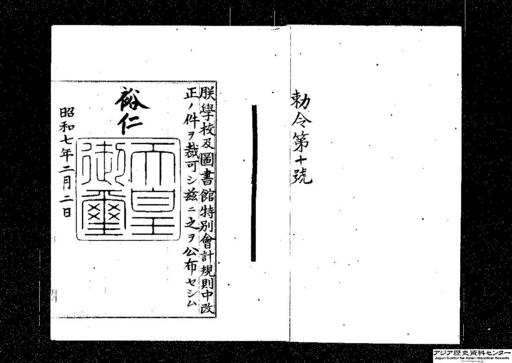 勅令第十號
朕學校及圖書館特別會計規則中改
正ノ件ヲ裁可シ茲ニ之ヲ公布セシム
裕仁
天皇
御璽
昭和七年二月二日
アジア歴史資料センター
Japan Center for Asian Historical Records